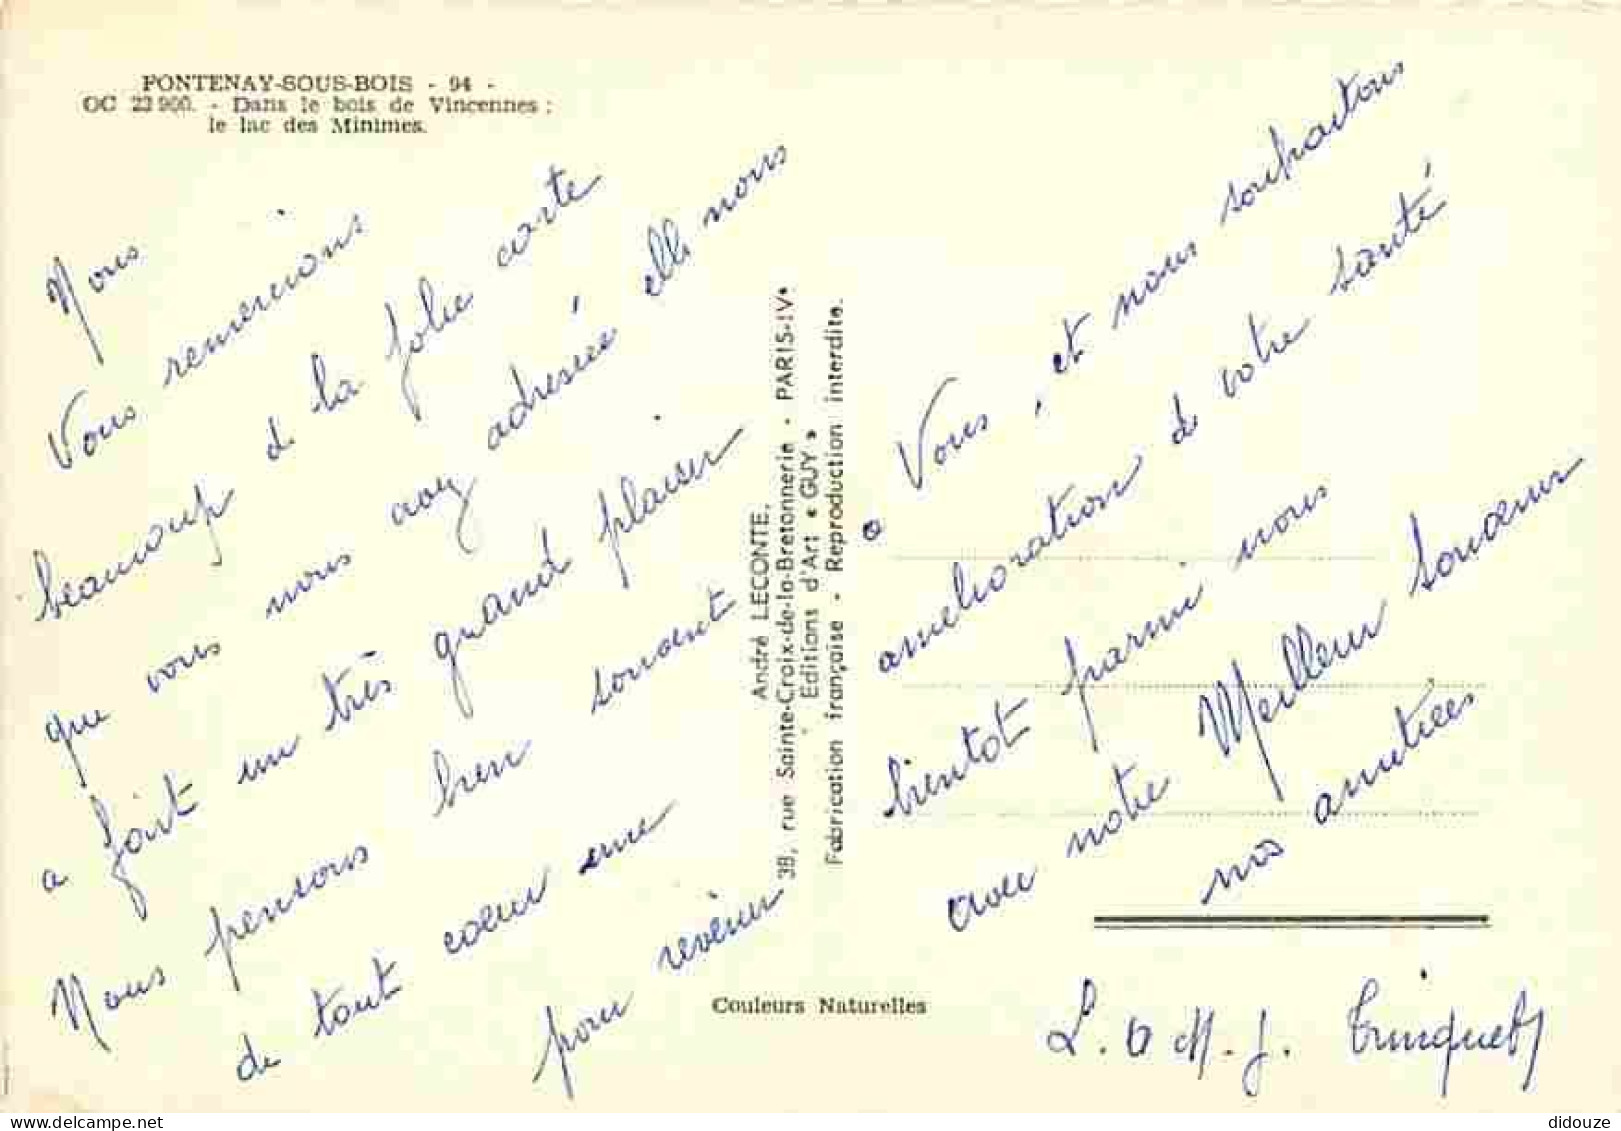 FONTENAY-SOUS-BOIS - 94 -
OC 23 900. - Dans le bois de Vincennes ;
le lac des Minimes.
Nous
Vous remercions
beaucoup de la jolie carte
que vous nous avez adressée elle nous
a fait un très grand plaisir
Nous pensons bien souvent
de tout coeur
pour revenir
André LECONTE,
38, rue Sainte-Croix-de-la-Bretonnerie - PARIS-IVe
Editions d'Art « GUY »
Fabrication française - Reproduction interdite.
a Vous, et nous souhaitons
amelioration de votre santé
bientot parmi nous
avec notre Meilleur Souvenir
nos amitiées
Couleurs Naturelles
didouze